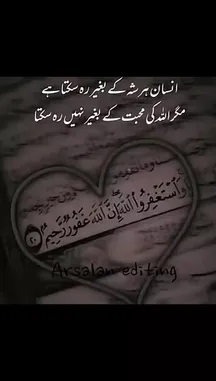 انسان ہر شہ کے بغیر رہ سکتا ہے
مگر اللہ کی محبت کے بغیر نہیں رہ سکتا
وَٱسۡتَغۡفِرُوا۟ ٱللَّهَۖ إِنَّ ٱللَّهَ غَفُورࣱ رَّحِيمُۢ ٢٠
Arsalan editing